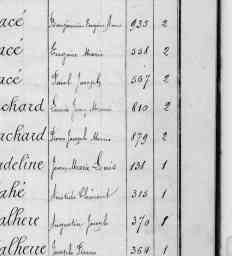 acé Benjamin Eugène 935 2
acé Eugène Marie 558 2
acé Paul Joseph 567 2
chard Louis Jean 810 2
achard Pierre Joseph Marie 879 2
adeline Jean Marie Louis 131 1
ahé Aristide Clément 315 1
alhere Augustin Joseph 370 1
alherre Joseph Pierre 364 1